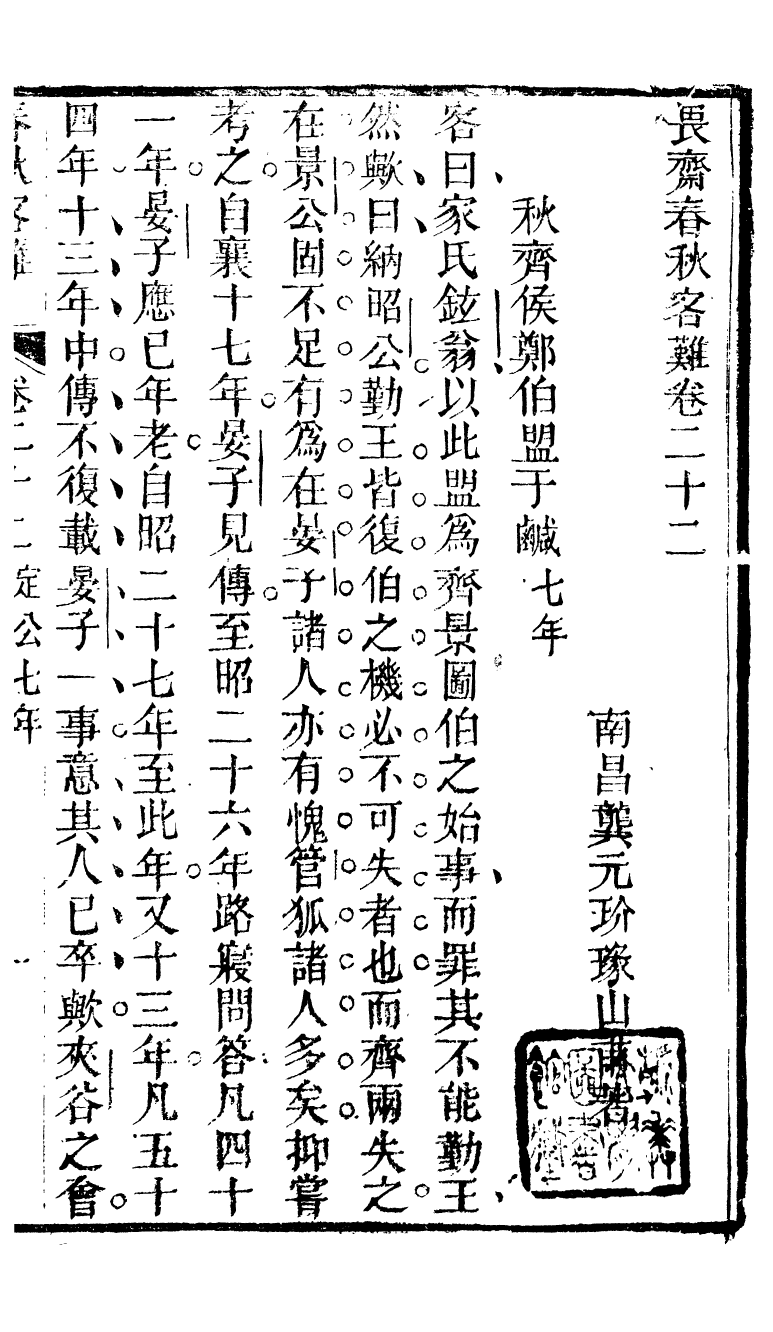 畏齋春秋客難卷二十二
南昌龔元玠瑑山甫著
秋齊侯鄭伯盟于鹹七年
客曰家氏鉉翁以此盟爲齊景圖伯之始事而罪其不能勤王
然歟曰納昭公勤王皆復伯之機必不可失者也而齊兩失之
在景公固不足有爲在晏子諸人亦有愧管狐諸人多矣抑嘗
考之自襄十七年晏子見傳至昭二十六年路寢問答凡四十
一年晏子應已年老自昭二十七年至此年又十三年凡五十
四年十三年中傳不復載晏子一事意其人已卒歟夾谷之會
春秋客難 卷二十二定公七年 一